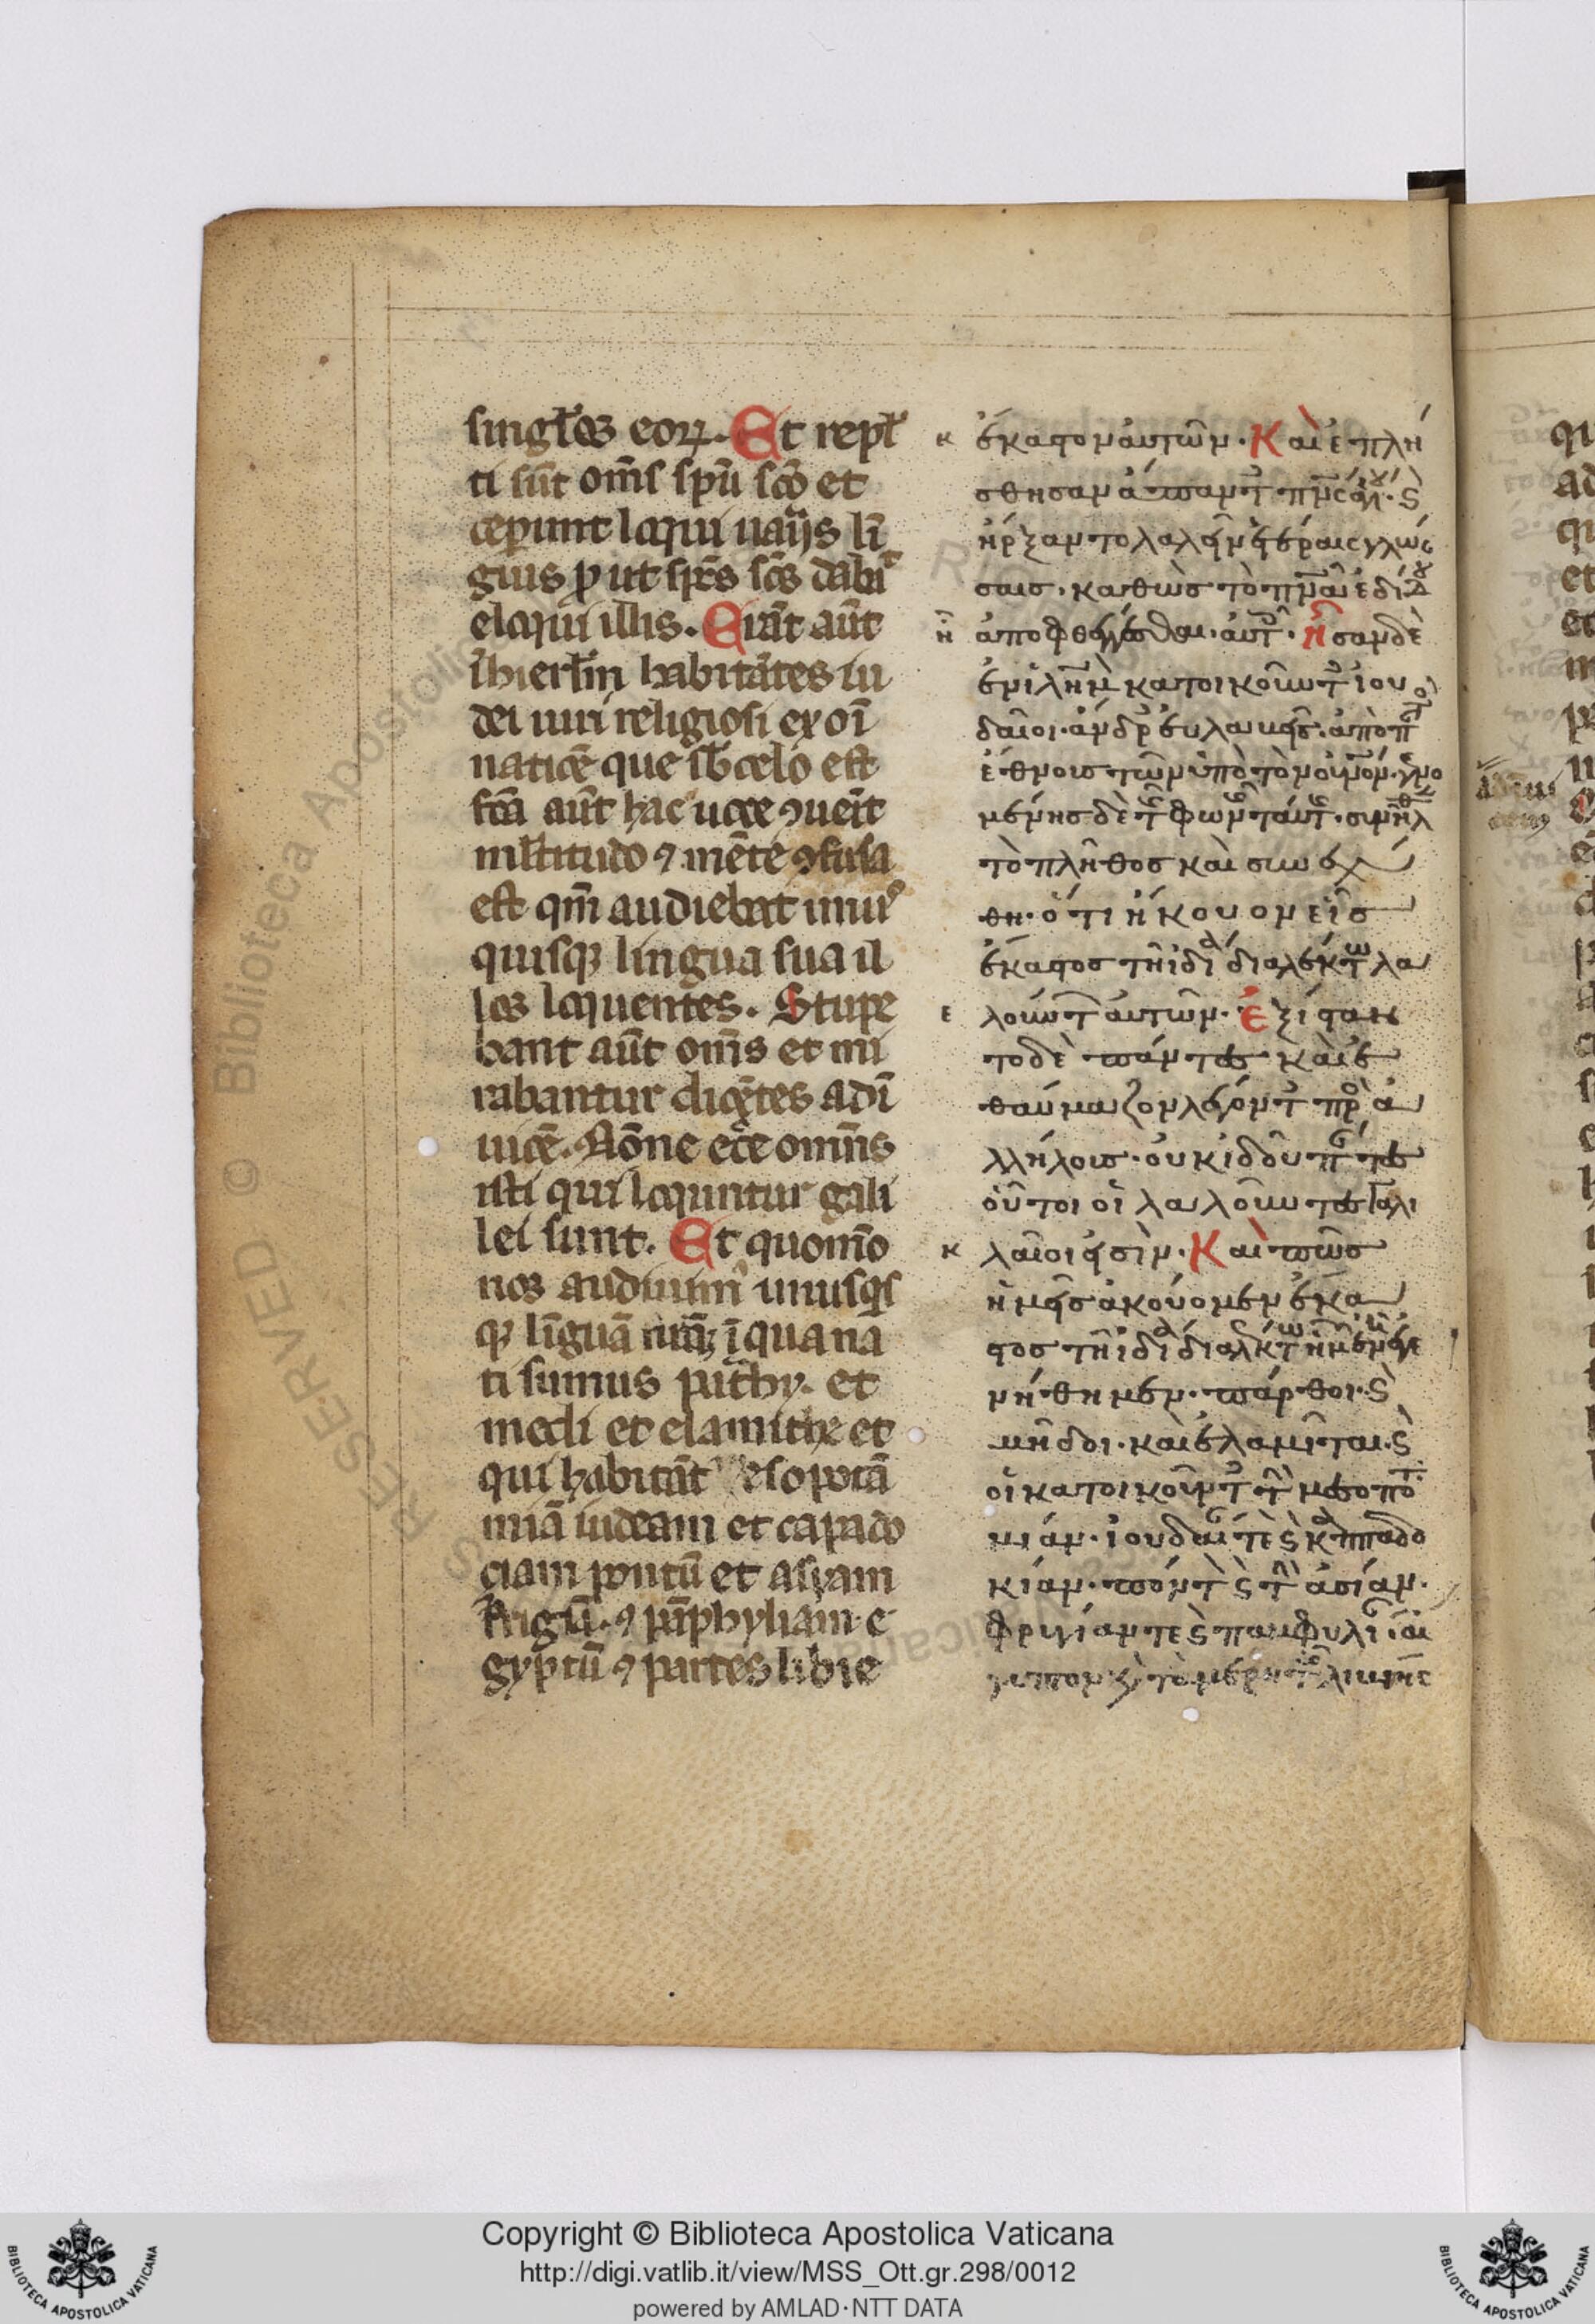 singl̄os eoꝝ. Et repl̄
ti sūt om̄s sp̄u sc̄o et
ceperunt loqui uarijs lī
guis ꝓ ut sp̄s sc̄s dabāt
eloqui illis. Erāt aūt
ī hierl̄m habitātes iu
dei uiri religiosi ex oī
natiōe que sb̄ celo est
fc̄a aūt hac uoce ꝯueīt
ml̄titudo ⁊ mēte ꝯfusa
est qm̄ audiebat unus
quisqꝫ lingua sua il
los loquentes. Stupe
bant aūt om̄s et mi
rabantur dicētes ad ī
uicē. Nōne ecce omnes
isti qui loquuntur gali
lei sunt. Et quomō
nos audiuimꝰ unusqꝫ
qꝫ līguā nr̄aꝫ ī qua na
ti sumus parthy. et
medi et elamithe et
qui habitāt esopotā
miā iudeam et capado
ciam pontū et asyam
frigiā. ⁊ pāphyliam e
gyptū ⁊ partes libie
κ ἕκαστον αὐτῶν. Καὶ ἐπλή
σθησαν ἅπαντ πν̄ς ἁγίου. ϛ
ἤρξαντο λαλεῖν ἑτέραις γλώσ
σαις. καθὼς τὸ πν̄α ἐδίδου
ἦ ἀποφθέγγεσθαι. αὐτ. ἦσαν δὲ
ἐν ἰλη̄μ κατοικοῦντ ἰου
δαῖοι. ἄνδρ εὐλαβεῖς. ἀπὸ π
ἔθνους τῶν ὑπὸ τὸν οὐν̄όν. γενο
μένης δὲ τ φων ταύτ. συνῆλθ
τὸ πλῆθος καὶ συνεχύ
θη. ὅτι ἤκουον εἷς
ἕκαστος τῆ ἰδία διαλέκτω λα
ε λούντ αὐτῶν. Ἐξίσταν
το δὲ πάντες καὶ ἐ
θαύμαζον λέγοντ πρὸ ἀ
λλήλους. οὐκ ἰδοὺ πάντες
οὗτοι οἱ λαλοῦντες Γαλι
κ λαῖοι εἰσὶν. Καὶ πῶς
ἡμεῖς ἀκούομεν ἕκα
στος τῆ ἰδία διαλέκτω ἡμῶν ἐν ἧ ἐγε
νήθημεν. πάρθοι. ϛ
μῆδοι. καὶ ἐλαμῖται. ϛ
οἱ κατοικοῦντ τ μεσοποτ
μίαν. ἰουδαίαν τὲ ϛ καππαδο
κίαν. πόντ ϛ τὴν ἀσίαν.
Φριγίαν τε ϛ παμφυλί. αἴ
γυπτον ϛ τὰ μέρη τῆς λιβύης
Copyright © Biblioteca Apostolica Vaticana
http://digi.vatlib.it/view/MSS_Ott.gr.298/0012
powered by AMLAD·NTT DATA
BIBLIOTECA APOSTOLICA VATICANA
BIBLIOTECA APOSTOLICA VATICANA